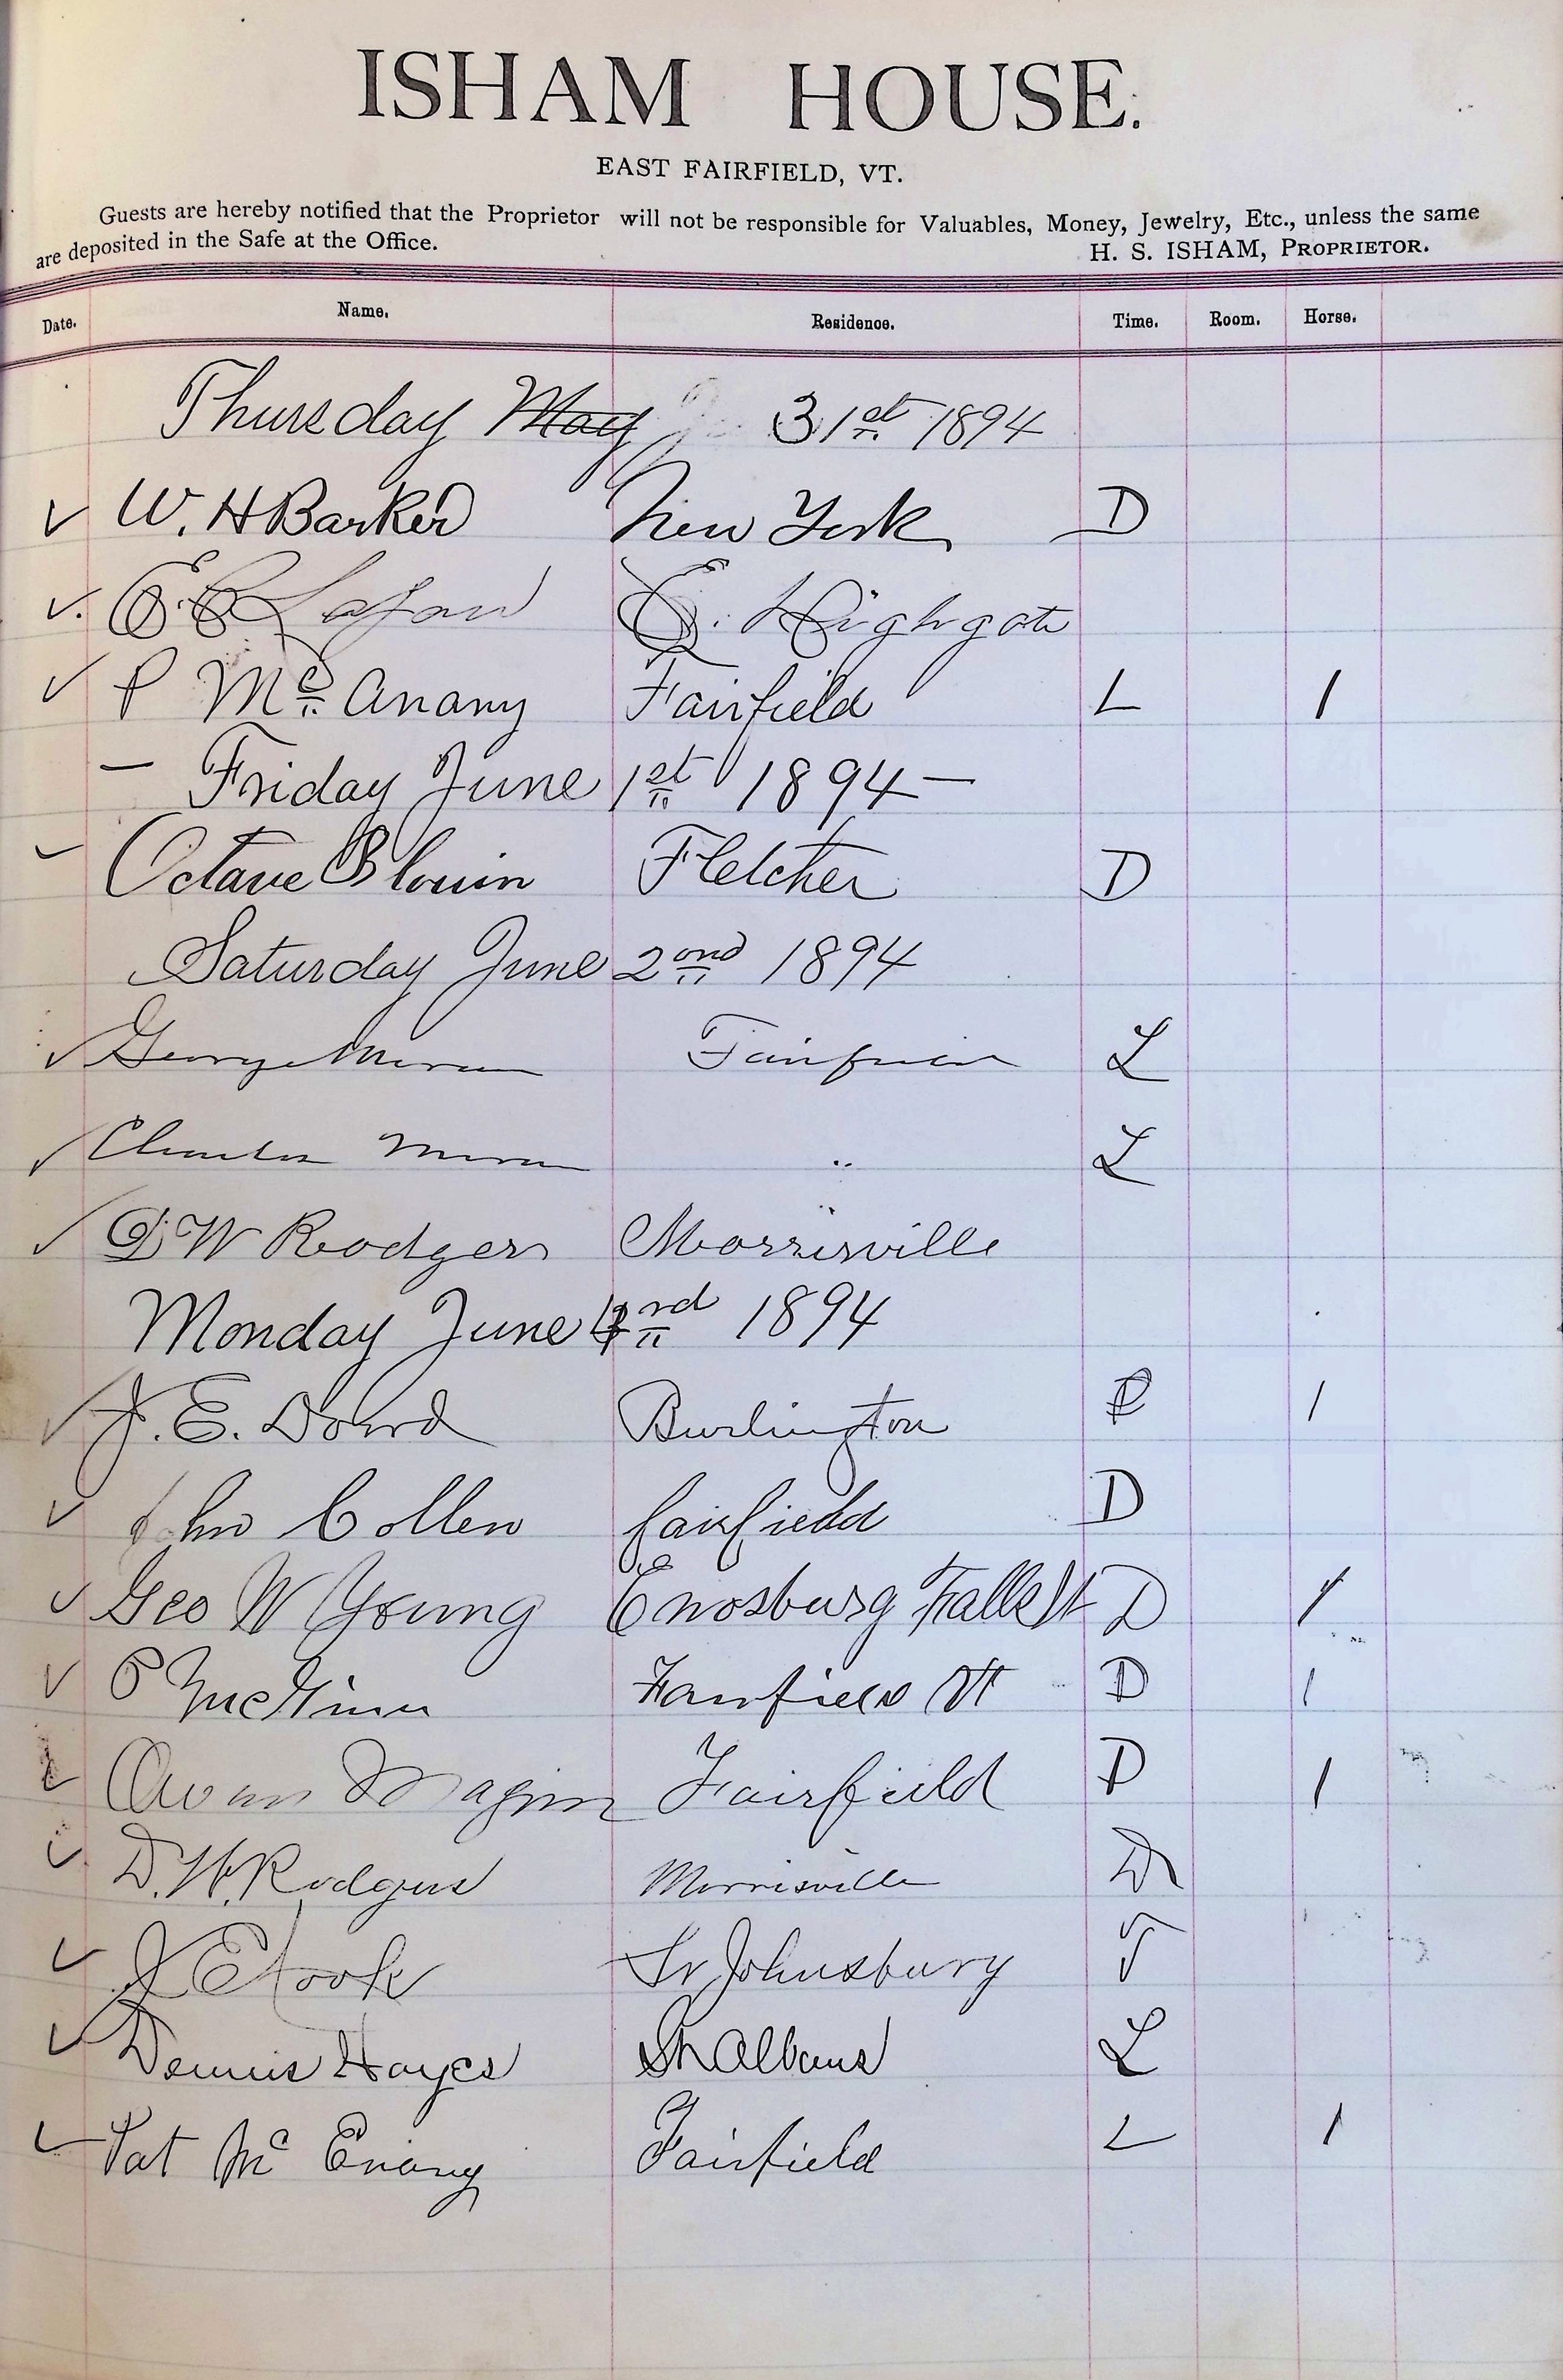 ISHAM HOUSE.
EAST FAIRFIELD, VT.
Guests are hereby notified that the Proprietor will not be responsible for Valuables, Money, Jewelry, Etc., unless the same
are deposited in the Safe at the Office.
H. S. ISHAM, PROPRIETOR.
Date. Name. Residence. Time. Room. Horse.
Thursday May 31st 1894
✓ W. H Barker New York D
✓. E. Highgate
✓ P Mc Anany Fairfield L 1
— Friday June 1st 1894 —
✓ Octave Blouin Fletcher D
Saturday June 2ond 1894
✓ George Moran Fairfield L
✓ Charles Moran " L
✓ D W Rodgers Morrisville
Monday June 4rd 1894
✓ J. E. Dowd Burlington 1
✓ Collen fairfield D
✓ Geo W Young Enosburg Falls Vt D 1
✓ P McGinn Fairfield Vt D 1
✓ Owen Maginn Fairfield D 1
✓ D. W. Rodgers Morrisville D
✓ J E Cook St Johnsbury
✓ Dennis Hayes St Albans L
✓ Pat Mc Enany Fairfield L 1